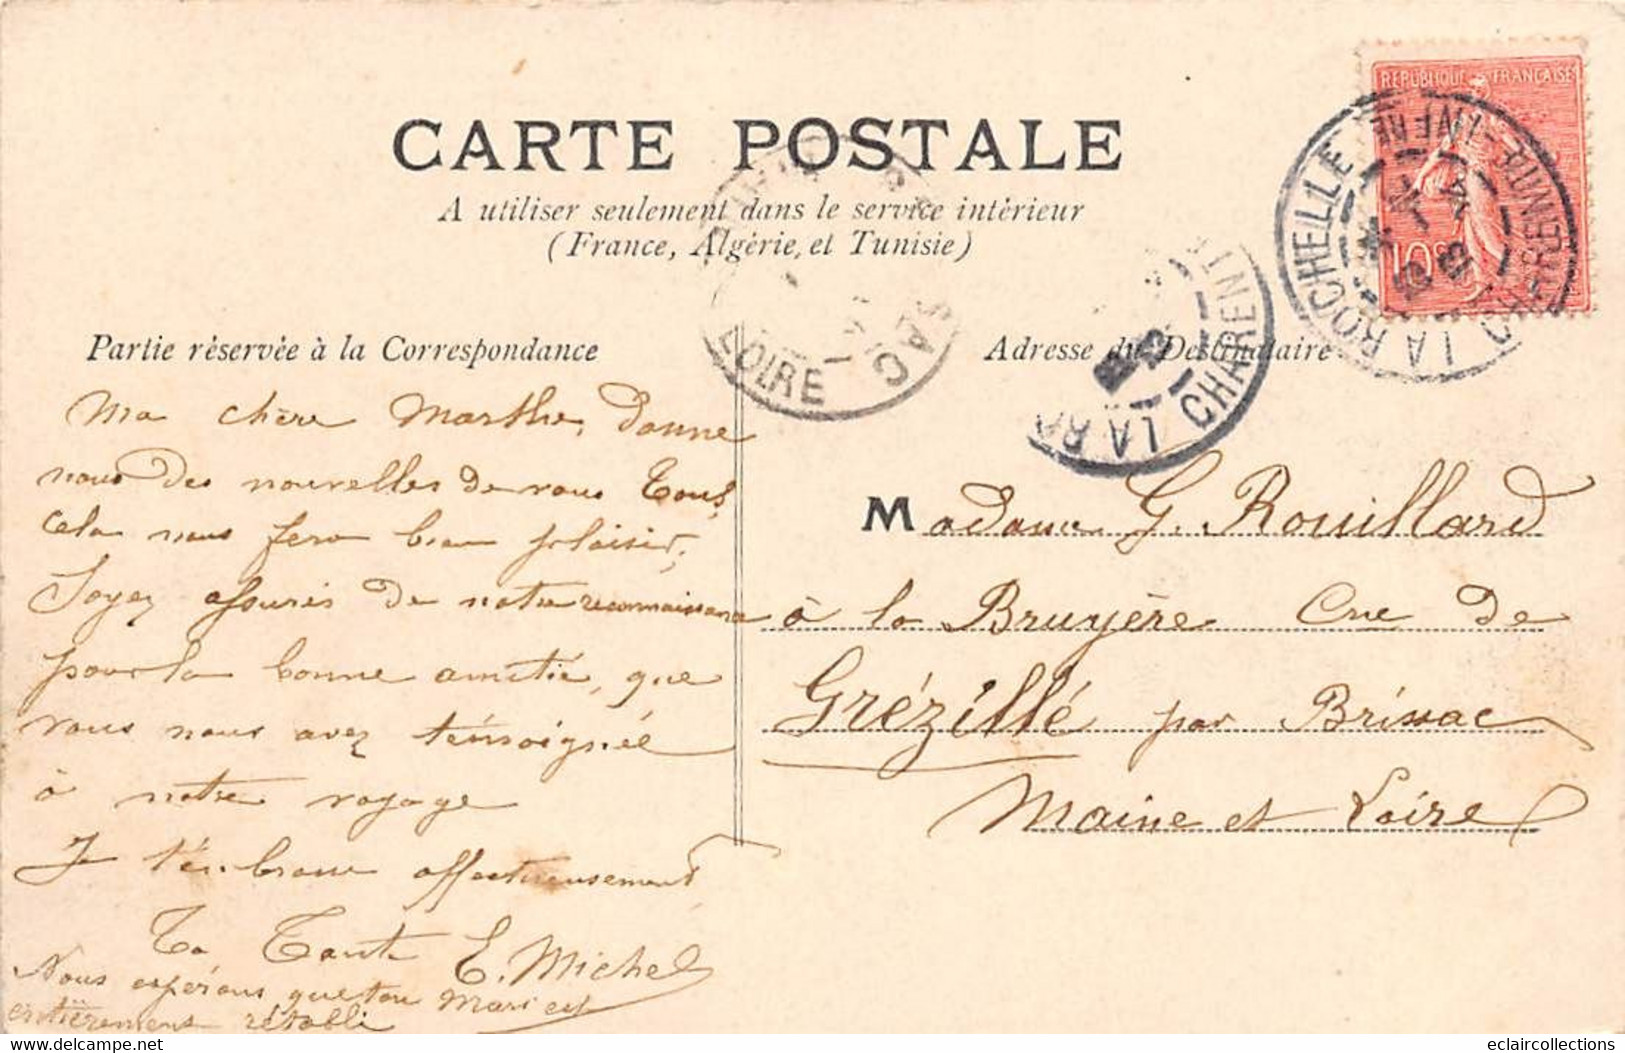 CARTE POSTALE
A utiliser seulement dans le service intérieur
(France, Algérie, et Tunisie)
REPUBLIQUE FRANÇAISE
10c
LA ROCHELLE
CHARENTE-INFRE
LA RO
CHARENT
LOIRE
Partie réservée à la Correspondance
Adresse du Destinataire
Ma chère Marthe, donne
nous des nouvelles de vous tous,
cela nous fera bien plaisir,
Soyez assurés de notre reconnaissance
pour la bonne amitié, que
vous nous avez témoignée
à notre voyage
Je t'embrasse affectueusement
Ta Tante E. Michel
Nous espérons que ton Mari est
entièrement rétabli
Madame G. Rouillard
à la Bruyère Cne de
Grézillé par Brissac
Maine et Loire
eclaircollections